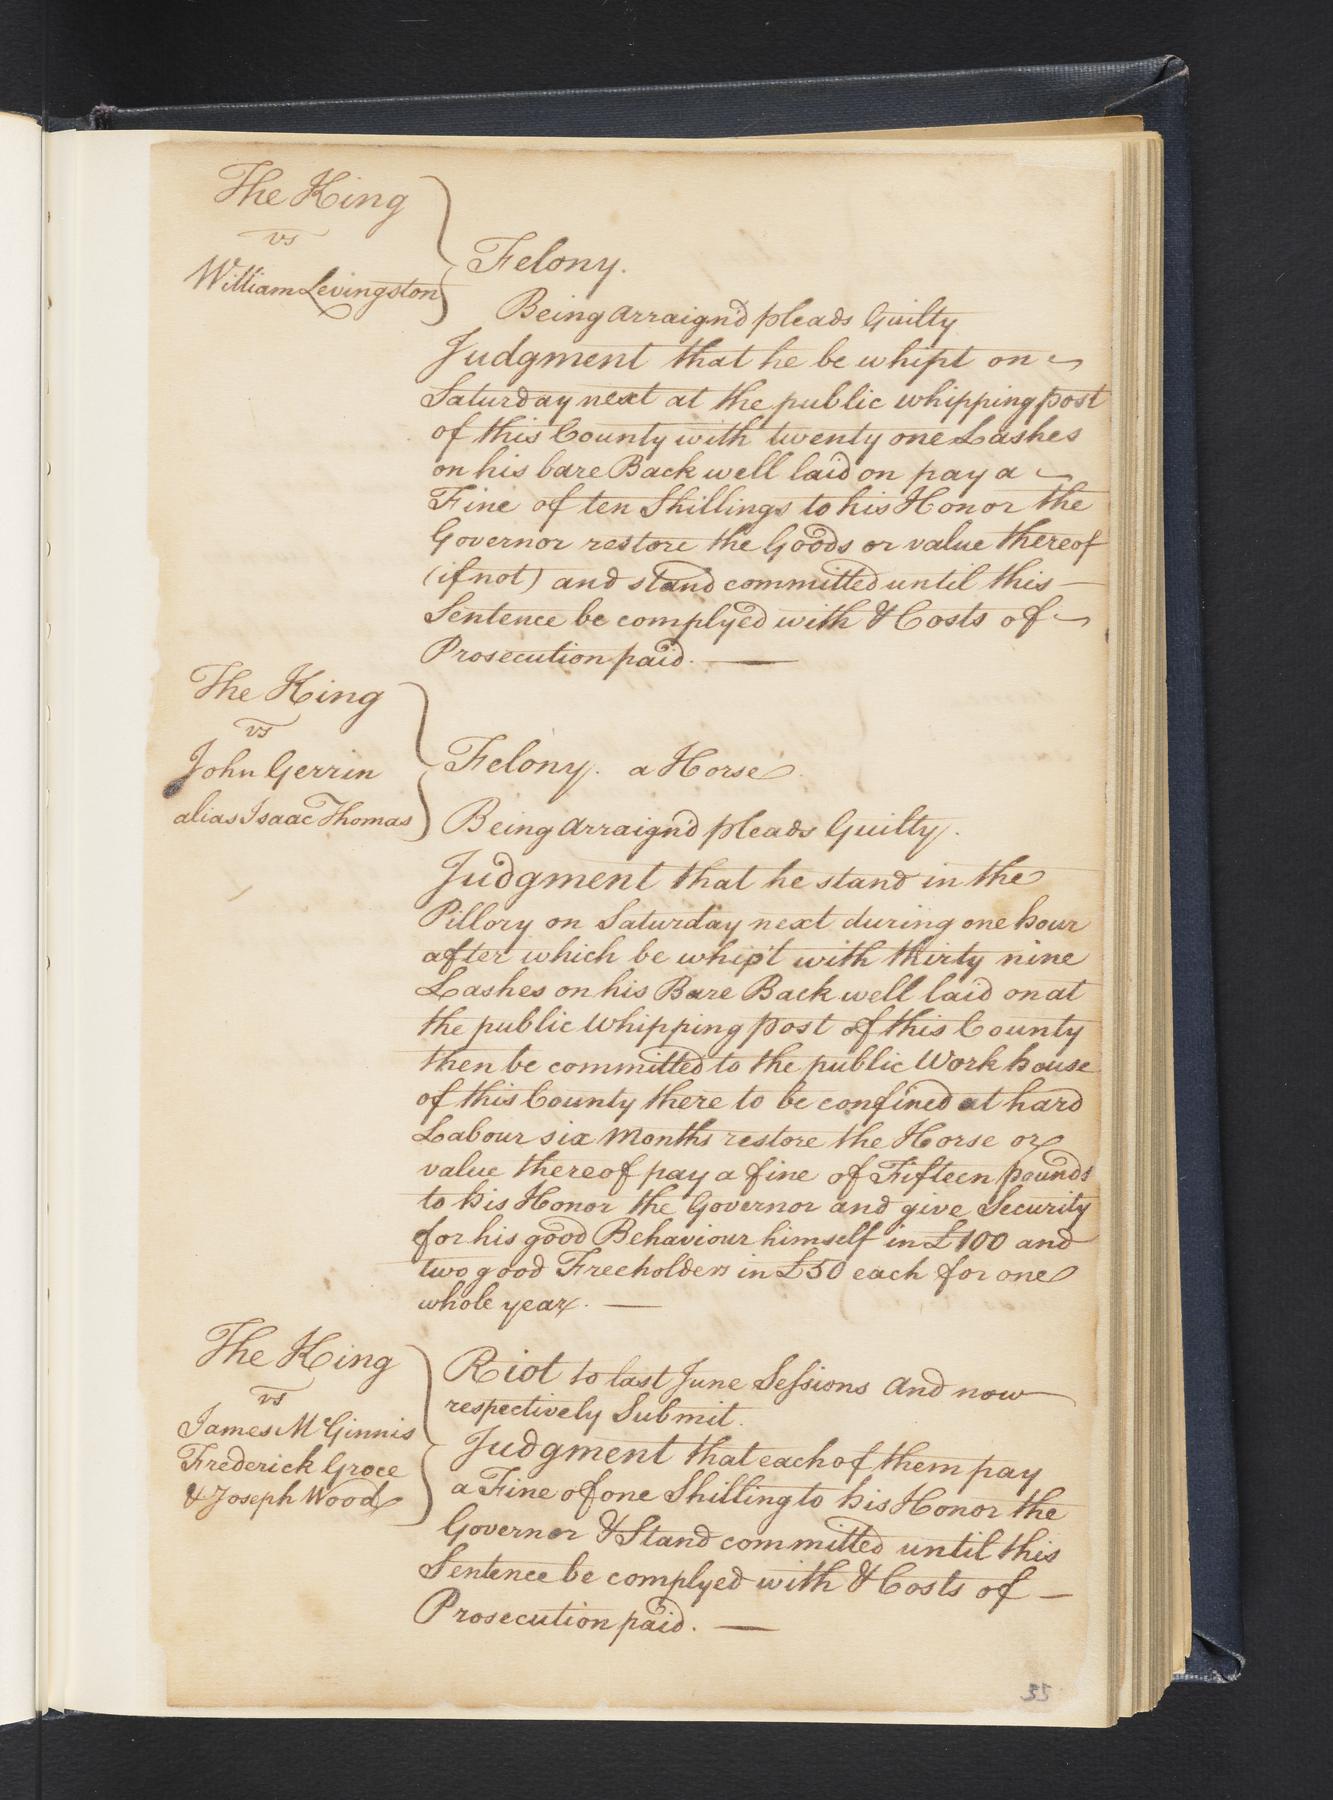 The King
vs
William Levingston
Felony.
Being arraign'd pleads Guilty
Judgment that he be whipt on
Saturday next at the public whipping post
of this County with twenty one Lashes
on his bare Back well laid on pay a
Fine of ten Shillings to his Honor the
Governor restore the Goods or value thereof
(if not) and stand committed until this
Sentence be complyed with & Costs of
Prosecution paid.
The King
vs
John Gerrin
alias Isaac Thomas
Felony. a Horse.
Being arraign'd pleads Guilty.
Judgment that he stand in the
Pillory on Saturday next during one hour
after which be whip't with thirty nine
Lashes on his Bare Back well laid on at
the public Whipping post of this County
then be committed to the public Work house
of this County there to be confined at hard
Labour six Months restore the Horse or
value thereof pay a fine of Fifteen pounds
to his Honor the Governor and give Security
for his good Behaviour himself in £100 and
two good Freeholders in £50 each for one
whole year.
The King
vs
James McGinnis
Frederick Groce
& Joseph Wood
Riot to last June Sessions and now
respectively Submit.
Judgment that each of them pay
a Fine of one Shilling to his Honor the
Governor & Stand committed until this
Sentence be complyed with & Costs of
Prosecution paid.